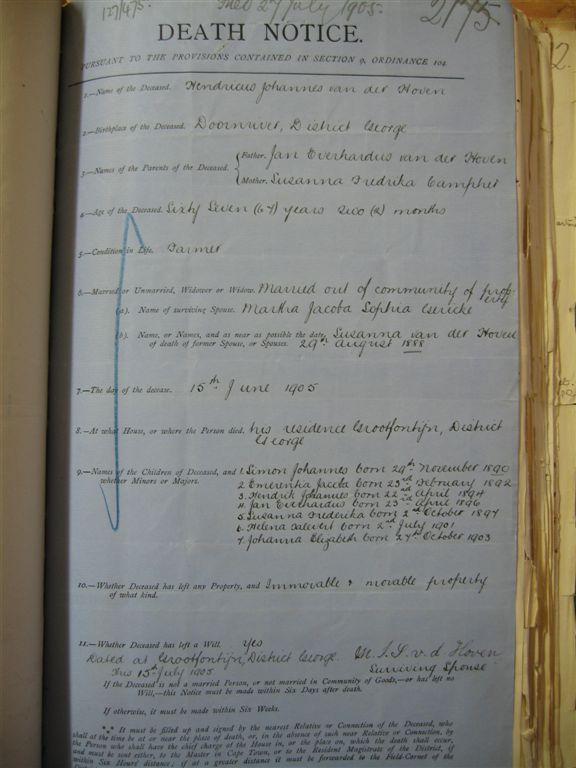 127/475. Filed 27 July 1905. 2175
DEATH NOTICE.
PURSUANT TO THE PROVISIONS CONTAINED IN SECTION 9, ORDINANCE 104.
1.—Name of the Deceased. Hendricus Johannes van der Hoven
2.—Birthplace of the Deceased. Doornriver, District George
3.—Names of the Parents of the Deceased. { Father. Jan Everhardus van der Hoven
Mother. Susanna Fredrika Campher
4.—Age of the Deceased. Sixty Seven (67) years two (2) months
5.—Condition in Life. Farmer
6.—Married or Unmarried, Widower or Widow. Married out of community of property
(a). Name of surviving Spouse. Martha Jacoba Sophia Gericke
(b). Name, or Names, and as near as possible the date, Susanna van der Hoven
of death of former Spouse, or Spouses. 29th August 1888
7.—The day of the decease. 15th June 1905
8.—At what House, or where the Person died. his residence Grootfontijn, District
George
9.—Names of the Children of Deceased, and 1. Simon Johannes born 29th November 1890
whether Minors or Majors. 2. Emerentia Jacoba born 23rd February 1892
3. Hendrik Johannes born 22nd April 1894
4. Jan Everhardus born 23rd April 1896
5. Susanna Frederika born 2nd October 1897
6. Helena born 2nd July 1901
7. Johanna Elizabeth born 27th October 1903
10.—Whether Deceased has left any Property, and Immovable & movable property
of what kind.
11.—Whether Deceased has left a Will. Yes
Dated at Grootfontijn, District George. M. J. S. v. d. Hoven
This 15th July 1905 Surviving Spouse
If the Deceased is not a married Person, or not married in Community of Goods,—or has left no
Will,—this Notice must be made within Six Days after death.
If otherwise, it must be made within Six Weeks.
It must be filled up and signed by the nearest Relative or Connection of the Deceased, who
shall at the time be at or near the place of death, or, in the absence of such near Relative or Connection, by
the Person who shall have the chief charge of the House in, or the place on, which the death shall occur,
and must be sent either, to the Master in Cape Town, or to the Resident Magistrate of the District, if
within Six Hours' distance; if at a greater distance it must be forwarded to the Field-Cornet of the